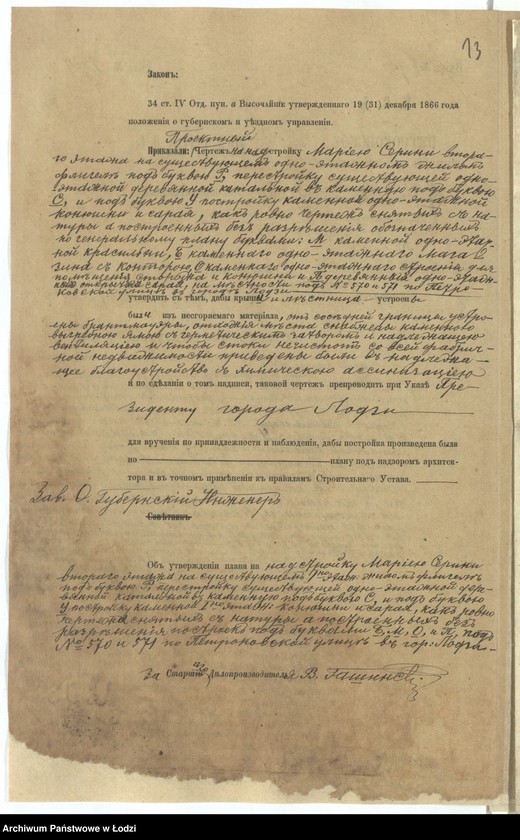 13
Законъ:
34 ст. IV Отд. пун. а Высочайше утвержденнаго 19 (31) декабря 1866 года
положенія о губернскомъ и уѣздномъ управленіи.
Проектный
Приказали: Чертежъ на надстройку Маріею Серини втора-
го этажа на существующемъ одно-этажномъ жиломъ
флигелѣ подъ буквою В перестройку существующей одно-
этажной деревянной катальной въ каменную подъ буквою
С, и подъ буквою У постройку каменной одно-этажной
конюшни и сарая, какъ ровно чертежъ снятый съ на-
туры а построенныхъ безъ разрѣшенія обозначенныхъ
по генеральному плану буквами: М каменной одно-этаж-
ной красильни, Е каменнаго одно-этажнаго мага-
зина съ конторою, О каменнаго одно-этажнаго строенія для
помѣщенія сторожа и конюшни и П деревянный одно-этаж-
ный сарай, на мѣстности подъ №570 и 571 по Петро-
ковской улицѣ въ городѣ Лодзи
утвердить съ тѣмъ, дабы крыша и лѣстница устроены
были изъ несгораемаго матеріала, отъ сосѣдней границы устро-
ены брантмауеры, отхожія мѣста снабжены каменною
выгребною ямою съ герметическимъ затворомъ и надлежащею
вентиляціею и чтобы стоки нечистотъ со всей фабрич-
ной недвижимости приведены были въ надлежа-
щее благоустройство съ химическою ассенизаціею
и по сдѣланіи о томъ надписи, таковой чертежъ препроводить при Указѣ Пре-
зиденту города Лодзи
для врученія по принадлежности и наблюденія, дабы постройка произведена была
по плану подъ надзоромъ архитек-
тора и въ точномъ примѣненіи къ правиламъ Строительнаго Устава.
Зав. О. Губернскій Инженеръ
Совѣтникъ
Объ утвержденіи плана на надстройку Маріею Серини
втораго этажа на существующемъ 1но этажн. жиломъ флигелѣ
подъ буквою В перестройку существующей одно-этажной дере-
вянной катальной въ каменную подъ буквою С, и подъ буквою
У постройку каменной 1но этажн. конюшни и сарая, какъ ровно
чертежа снятыхъ съ натуры а построенныхъ безъ
разрѣшенія построекъ подъ буквами Е, М, О, и П, подъ
№ 570 и 571 по Петроковской улицѣ въ гор: Лодзи.
за Старшаго Дѣлопроизводителя В.
Archiwum Państwowe w Łodzi